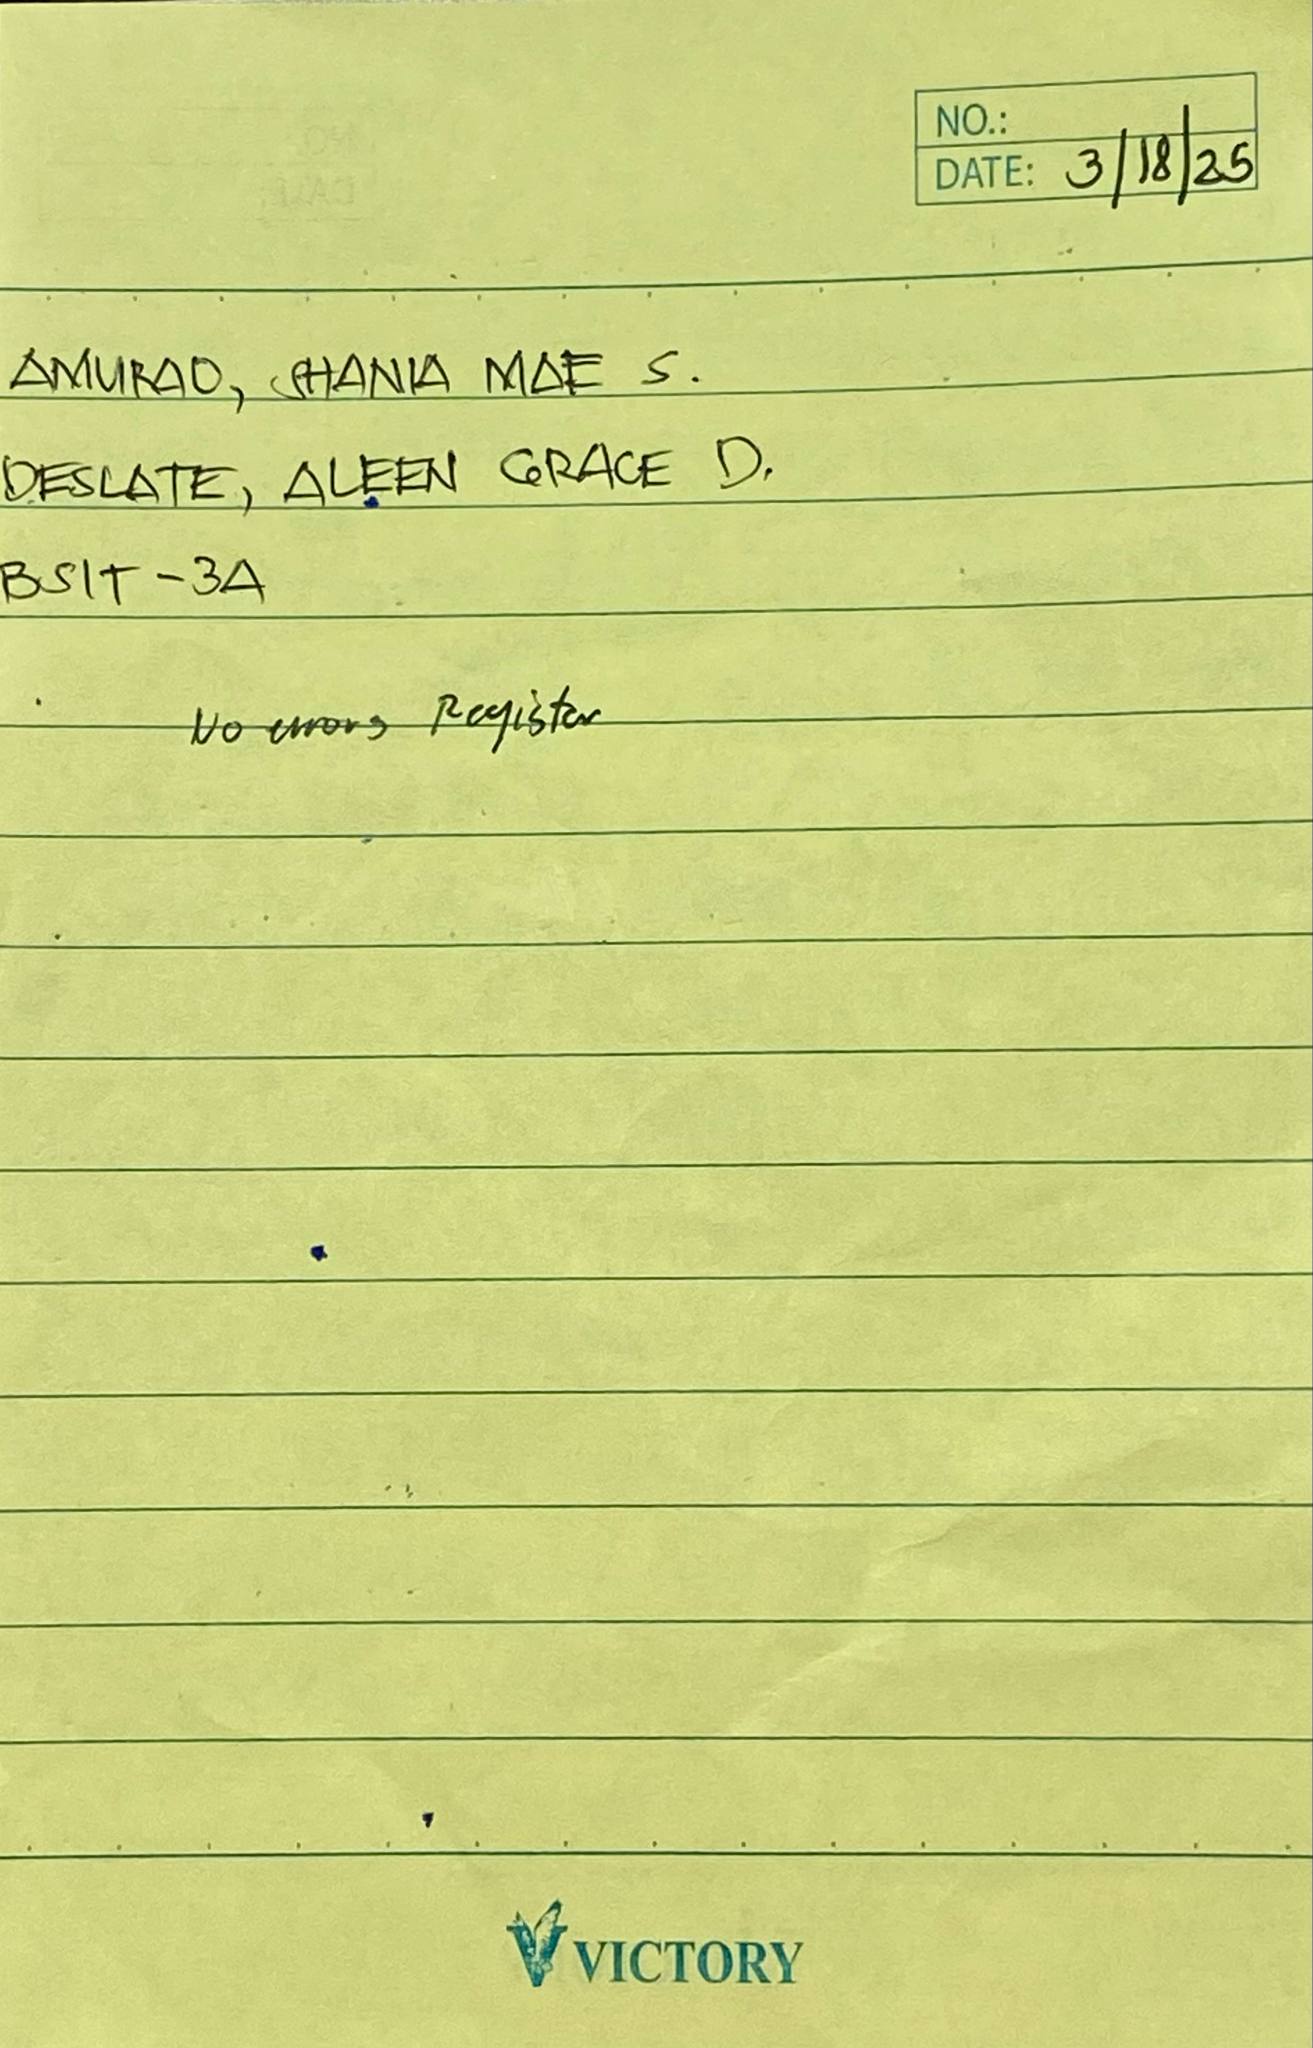 NO.:
DATE: 3/18/25
AMURAO, SHANIA MAE S.
DESLATE, ALEEN GRACE D.
BSIT - 3A
No errors Register
VICTORY